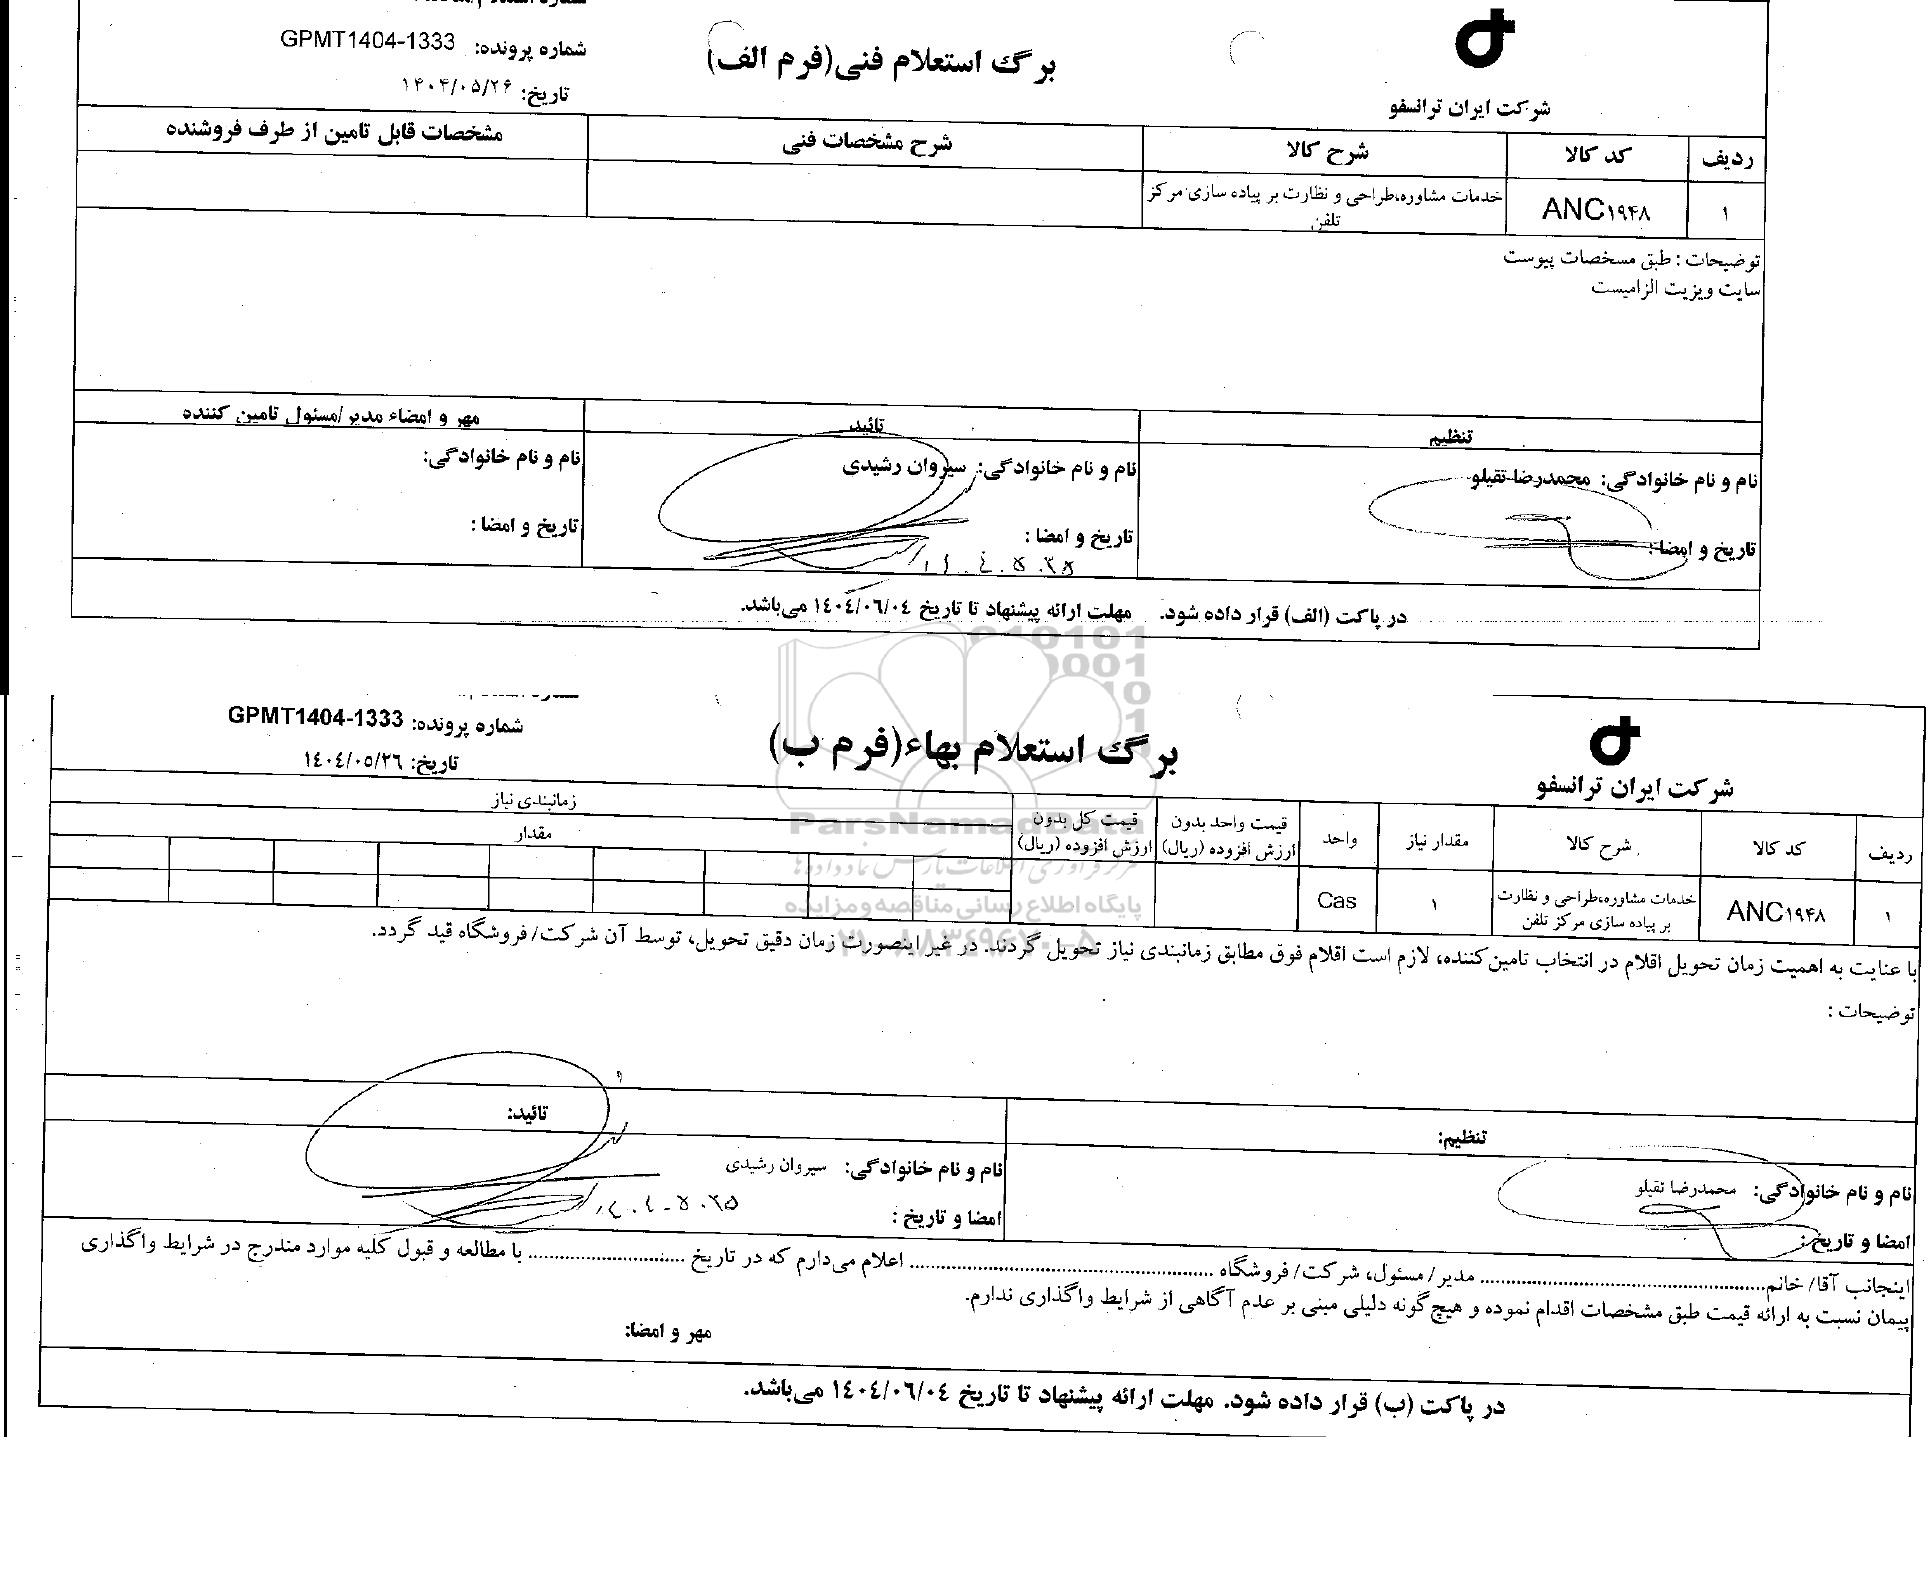 شماره پرونده: GPMT1404-1333
تاریخ: ۱۴۰۴/۰۵/۲۶
برگ استعلام فنی(فرم الف)
شرکت ایران ترانسفو
ردیف	کد کالا	شرح کالا	شرح مشخصات فنی	مشخصات قابل تامین از طرف فروشنده
۱	ANC۱۹۴۸	خدمات مشاوره،طراحی و نظارت بر پیاده سازی مرکز
تلفن
توضیحات : طبق مسخصات پیوست
سایت ویزیت الزامیست
تنظیم	تائید	مهر و امضاء مدیر/مسئول تامین کننده
نام و نام خانوادگی: محمدرضا تقیلو	نام و نام خانوادگی: سیروان رشیدی	نام و نام خانوادگی:
تاریخ و امضا :	تاریخ و امضا :	تاریخ و امضا :
در پاکت (الف) قرار داده شود. مهلت ارائه پیشنهاد تا تاریخ ۱۴۰۴/۰۶/۰۴ می‌باشد.
شماره پرونده: GPMT1404-1333
تاریخ: ۱۴۰۴/۰۵/۲۶
برگ استعلام بهاء(فرم ب)
شرکت ایران ترانسفو
ردیف	کد کالا	شرح کالا	مقدار نیاز	واحد	قیمت واحد بدون ارزش افزوده (ریال)	قیمت کل بدون ارزش افزوده (ریال)	زمانبندی نیاز
مقدار
۱	ANC۱۹۴۸	خدمات مشاوره،طراحی و نظارت	۱	Cas
بر پیاده سازی مرکز تلفن
با عنایت به اهمیت زمان تحویل اقلام در انتخاب تامین‌کننده، لازم است اقلام فوق مطابق زمانبندی نیاز تحویل گردند. در غیر اینصورت زمان دقیق تحویل، توسط آن شرکت/فروشگاه قید گردد.
توضیحات :
تنظیم:	تائید:
نام و نام خانوادگی: محمدرضا تقیلو	نام و نام خانوادگی: سیروان رشیدی
امضا و تاریخ :	امضا و تاریخ :
اینجانب آقا/ خانم.................... مدیر/ مسئول، شرکت/ فروشگاه .................... اعلام می‌دارم که در تاریخ .................... با مطالعه و قبول کلیه موارد مندرج در شرایط واگذاری
پیمان نسبت به ارائه قیمت طبق مشخصات اقدام نموده و هیچ‌گونه دلیلی مبنی بر عدم آگاهی از شرایط واگذاری ندارم.
مهر و امضا:
در پاکت (ب) قرار داده شود. مهلت ارائه پیشنهاد تا تاریخ ۱۴۰۴/۰۶/۰۴ می‌باشد.
ParsNamadData
پایگاه اطلاع رسانی مناقصه و مزایده